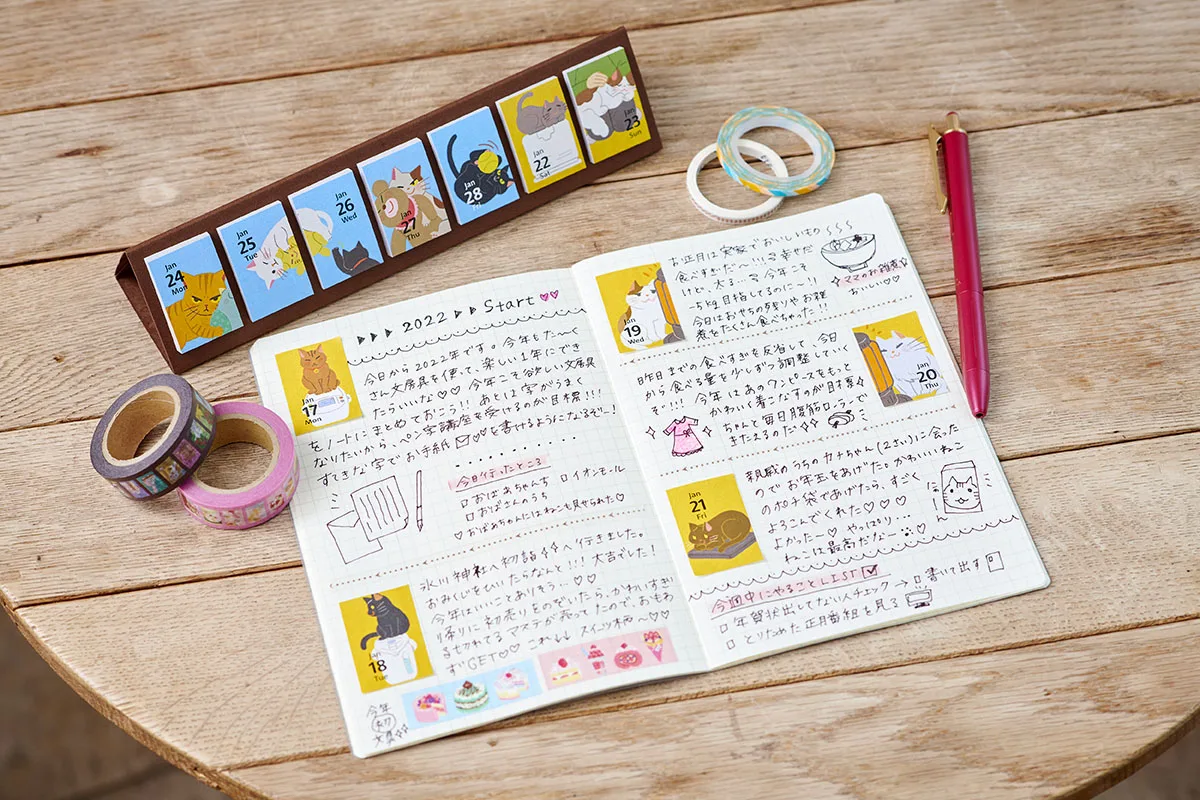 Jan
24
Mon
Jan
25
Tue
Jan
26
Wed
Jan
27
Thu
Jan
28
Fri
Jan
22
Sat
Jan
23
Sun
2022 Start
Jan
17
Mon
今日から2022年です。今年もた〜く
さん文房具を使って、楽しい1年にでき
たらいいな♡ 今年こそ欲しい文房具
をノートにまとめておこう!! あと1コ字がうまく
なりたいから、ペン字講座を受けるのが目標!!!
すてきな字でお手紙♡♡を書けるようになるぞー!
今日行ったところ
□ おばあちゃんち □ イオンモール
□ おばさんのうち
♡ おばあちゃんにはねこも見せられた♡
Jan
18
Tue
氷川神社へ初詣へ行きました。
おみくじをひいたらなんと!!! 大吉でした!
今年はいいことありそう…♡♡
帰りに初売りをのぞいたら、かわいすぎ
る切れてるマステが売ってたので、おもわ
ずGET♡♡ これ↓↓ スイーツ柄〜♡♡
今年
初
文具
Jan
19
Wed
お正月は実家でおいしいもの
食べすぎた〜!!! 幸せだ
けど、太る…今年こそ
−5kg目指してるのにー!!
今日はおせちの残りやお雑
煮をたくさん食べちゃった!!
ママのお雑煮
おいしい♡♡
Jan
20
Thu
昨日までの食べすぎを反省して、今日
から食べる量を少しずつ調整していく
ぞ!!! 今年はあのワンピースをもっと
かわいく着こなすのが目標
ちゃんと毎日腹筋ローラーで
きたえるのだ
Jan
21
Fri
親戚のうちのカナちゃん(2さい)に会った
のでお年玉をあげた。かわいいねこ
のポチ袋であげたら、すごく
よろこんでくれた♡♡♡
よかった〜♡ やっぱり…
ねこは最高だな〜
今週中にやることLIST
□ 年賀状出してない人チェック → □ 書いて出す
□ とりだめた正月番組を見る